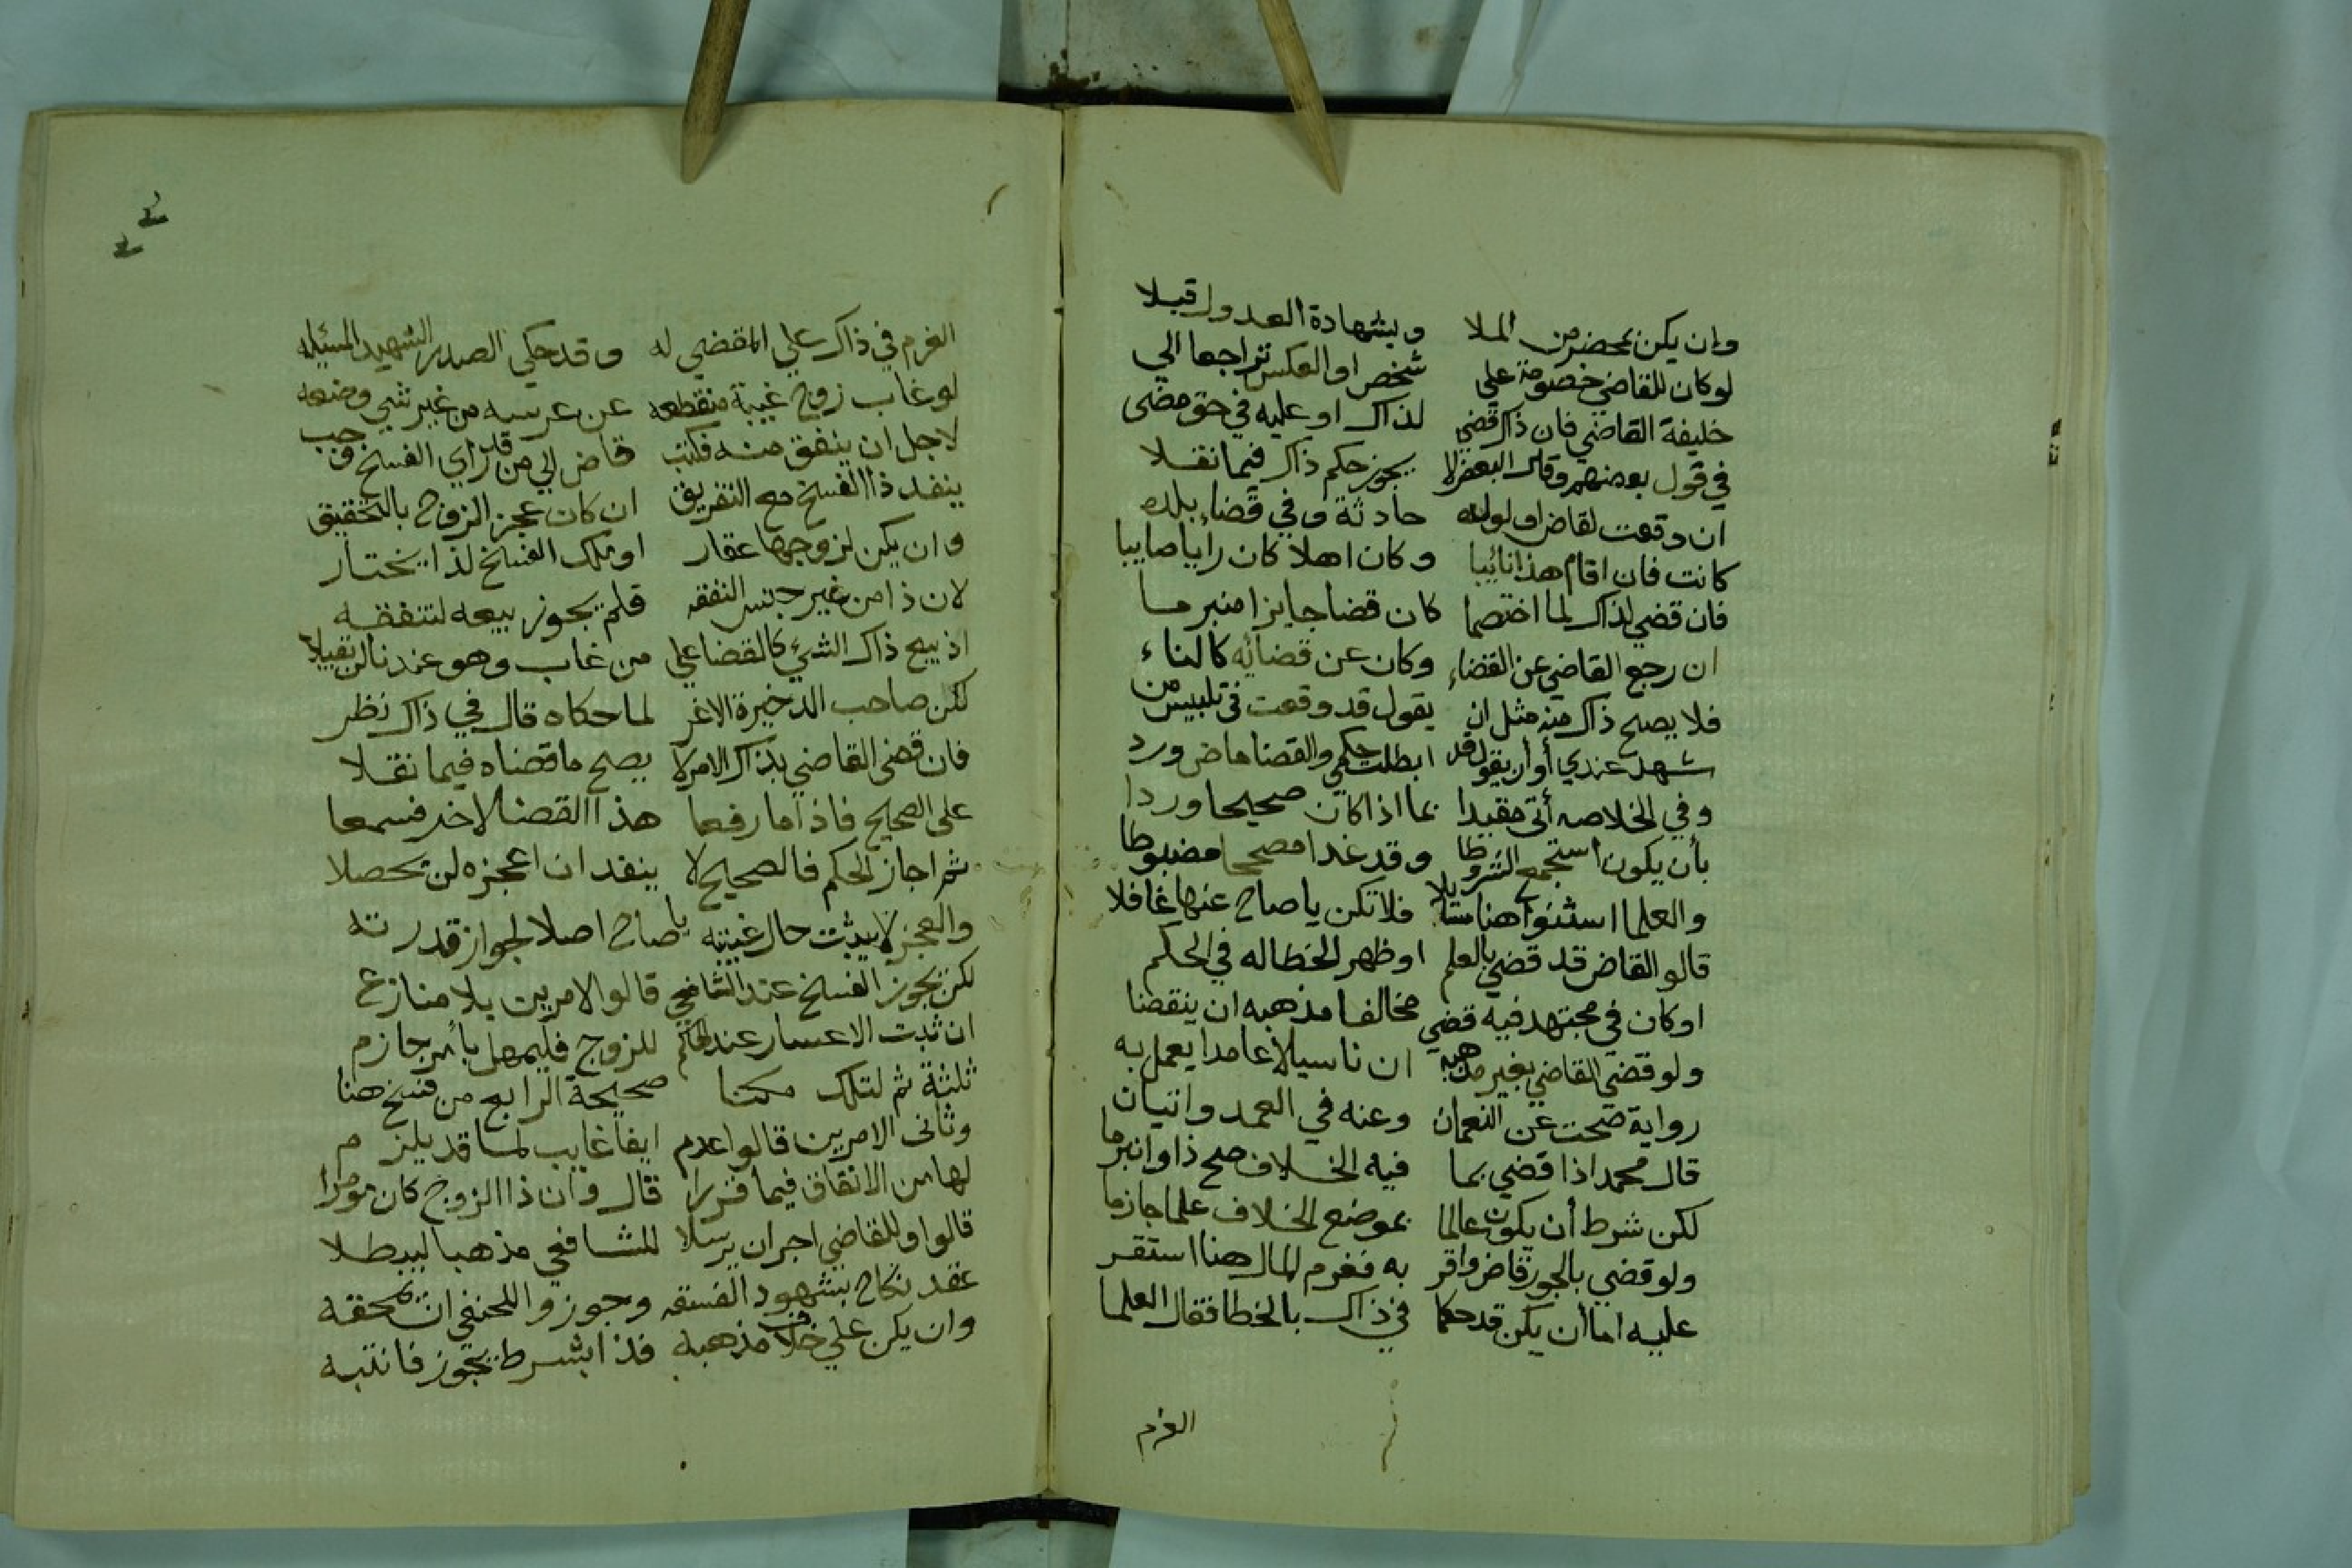 وان يكن بمحضر من الملا وبشهادة العدول قبلا
لو كان للقاضي خصومة علي شخص او العكس تراجعا الي
خليفة القاضي فان ذاك قضي لذاك او عليه في حق مضى
في قول بعضهم وقال البعض لا يجوز حكم ذاك فيما نقلا
ان وقعت لقاض او لولده حادثة وفي قضاء بلده
كانت فان اقام هذا نائبا وكان اهلا كان رايا صايبا
فان قضي لذاك لما اختصما كان قضا جايزا منبرما
ان رجع القاضي عن القضاء وكان عن قضائه كالناء
فلا يصح ذاك منه مثل ان يقول قد وقعت في تلبيس من
شهد عندي أو أن يقول قد ابطلت حكمي والقضا ماض ورد
وفي الخلاصه أتى مقيدا بما اذا كان صحيحا وردا
بأن يكون استجمع الشروطا وقد غدا مصححا مضبوطا
والعلما استثنوا هنا مسائلا فلا تكن يا صاح عنها غافلا
قالوا لقاض قد قضي بالعلم او ظهر الخطا له في الحكم
او كان في مجتهد فيه قضي مخالفا مذهبه ان ينقضا
ولو قضي القاضي بغير مذهبه ان ناسيا لا عامدا يعمل به
رواية صحت عن النعمان وعنه في العمد روايتان
قال محمد اذا قضي بما فيه الخلاف صح ذا وانبرما
لكن شرط أن يكون عالما بموضع الخلاف علما جازما
ولو قضي بالجور قاض واقر به فغرم المال هنا استقر
عليه اما أن يكن قد حكما في ذاك بالخطا فقال العلما
الغرم
الغرم في ذاك علي المقضي له وقد حكي الصدر الشهيد المسئله
لو غاب زوج غيبة منقطعه عن عرسه من غير شي وضعه
لاجل ان ينفق منه فكتب قاض الي من قد راي الفسخ وجب
ينفد ذا الفسخ مع التفريق ان كان عجز الزوج بالتحقيق
وان يكن لزوجها عقار او ملك الفسخ لذا يختار
لان ذا من غير جنس النفقه فلم يجوز بيعه لتنفقه
اذ بيع ذاك الشيء كالقضا علي من غاب وهو عندنا لن يقبلا
لكن صاحب الذخيرة الاغر لما حكاه قال في ذاك نظر
فان قضى القاضي بذاك الامر لا يصح ما قضاه فيما نقلا
على الصحيح فاذا ما رفعا هذا القضا لاخر فسمعا
ثم اجاز الحكم فالصحيح لا ينفد ان اعجزه لن تحصلا
والعجز لا يثبت حال غيبته يا صاح اصلا لجواز قدرته
لكن يجوز الفسخ عند الشافعي قالوا لامرين بلا منازع
ان ثبت الاعسار عند الحاكم للزوج فليمهل بأمر جازم
ثلثة ثم لتلك مكنا صحيحة الرابع من فسخ هنا
وثاني الامرين قالوا عدم ايفا غايب لما قد يلزم
لها من الانفاق فيما قررا قال وان ذا الزوج كان موسرا
قالوا وللقاضي اجز ان يرسلا للشافعي مذهبا ليبطلا
عقد نكاح بشهود الفسقه وجوزوا للحنفي ان يحققه
وان يكن علي خلاف مذهبه فذا بشرط يجوز فانتبه